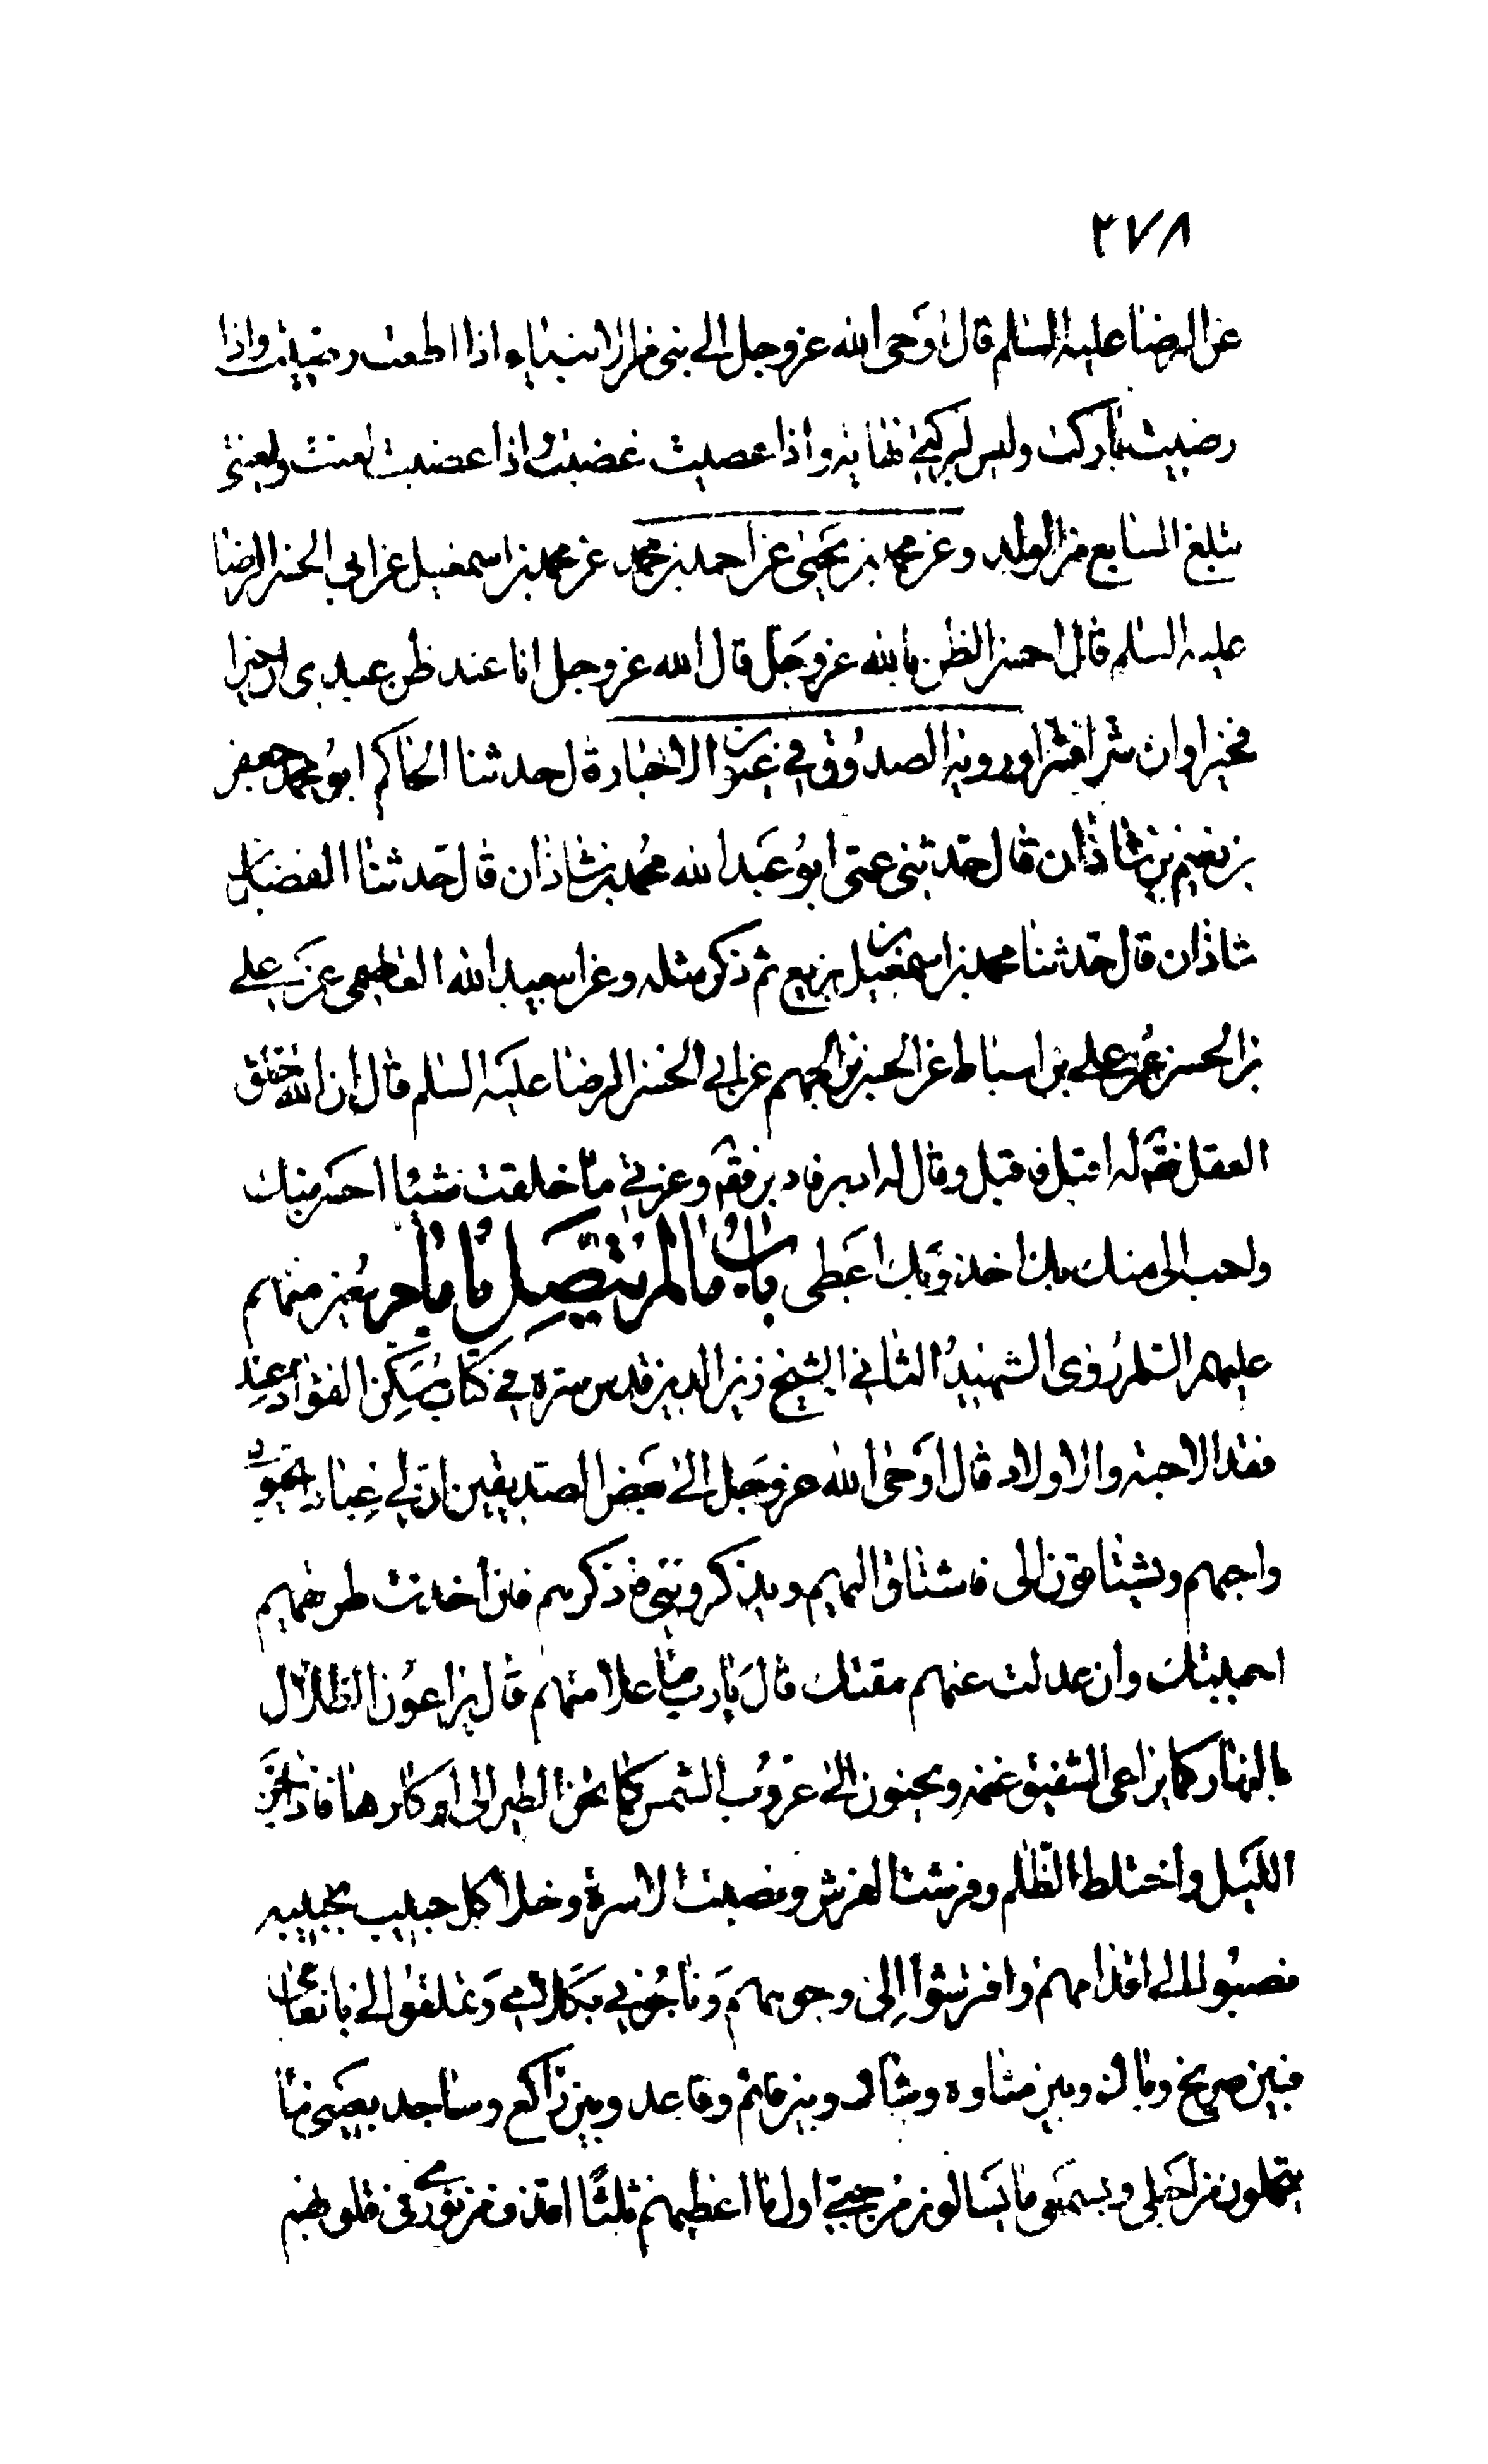 ٢٧٨
عن الرضا عليه السلم قال اوحى الله عز وجل الى نبى من الانبياء اذا اطعت رضيت واذا
رضيت باركت وليس لبركتي نهاية واذا عصيت غضبت واذا غضبت لعنت ولعنتى
تبلغ السابع من الولد وعن محمد بن يحيى عن احمد بن محمد عن محمد بن اسمعيل عن ابي الحسن الرضا
عليه السلم قال احسن الظن بالله عز وجل قال الله عز وجل انا عند ظن عبدى ان خيرا
فخيرا وان شرا فشرا ورويه الصدوق في عيون الاخبار قال حدثنا الحاكم ابو محمد جعفر
بن نعيم بن شاذان قال حدثنى عمى ابو عبد الله محمد بن شاذان قال حدثنا الفضل بن
شاذان قال حدثنا محمد بن اسمعيل بن بزيع ثم ذكر مثله وعن ابى عبد الله العاصمى عن على
بن الحسن عن على بن اسباط عن الحسن بن الجهم عن ابي الحسن الرضا عليه السلم قال ان الله خلق
العقل فقه له اقبل فاقبل وقال له ادبر فادبر فقه وعزتي ما خلقت شيئا احسن منك
واحب الى منك بك اخذ وبك اعطى باب ما لم يتصل بامام معين منهم
عليهم السلم روى الشهيد الثاني الشيخ زين الدين قدس سره في كتاب مسكن الفؤاد عند
فقد الاحبة والاولاد قال اوحى الله عز وجل الى بعض الصديقين ان لي عبادا يحبونى
واحبهم ويشتاقون الى فاشتاق اليهم ويذكرونني فاذكرهم فان اخذت طريقهم
احببتك وان عدلت عنهم مقتك قال يا رب ما علامتهم قال يراعون الظلال
بالنهار كما يراعى الشفيق غنمه ويحنون الى غروب الشمس كما تحن الطير الى اوكارها فاذا جن
الليل واختلط الظلم وفرشت الفرش ونصبت الاسرة وخلا كل حبيب بحبيبه
نصبوا الى اقدامهم وافترشوا الى وجوههم وناجوني بكلامى وتملقوا الى بانعامى
فبين صريخ وباك وبين متاوه وشاك وبين قائم وقاعد وبين راكع وساجد بعينى ما
يتحملون من اجلى وبسمعى ما يسألون من حبي اول ما اعطيهم ثلثا اقذف من نورى في قلوبهم